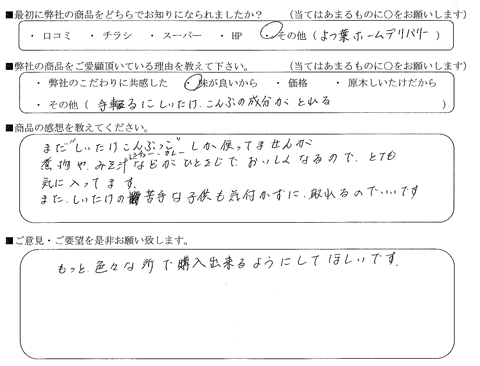 ■最初に弊社の商品をどちらでお知りになられましたか？ （当てはあまるものに○をお願いします）
・ 口コミ ・ チラシ ・ スーパー ・ HP ・ その他（よつ葉ホームデリバリー）
■弊社の商品をご愛顧頂いている理由を教えて下さい。 （当てはあまるものに○をお願いします）
・ 弊社のこだわりに共感した ・ 味が良いから ・ 価格 ・ 原木しいたけだから
・ その他（ 手軽るにしいたけ、こんぶの成分が とれる ）
■商品の感想を教えてください。
まだ"しいたけこんぶっこ" しか使ってませんが
煮物や、みそ汁 などがひとさじで おいしくなるので、とても
気に入ってます。
また、しいたけの 苦手な子供も気付かずに、取れるのでいいです
■ご意見・ご要望を是非お願い致します。
もっと、色々な所で購入出来るようにしてほしいです。